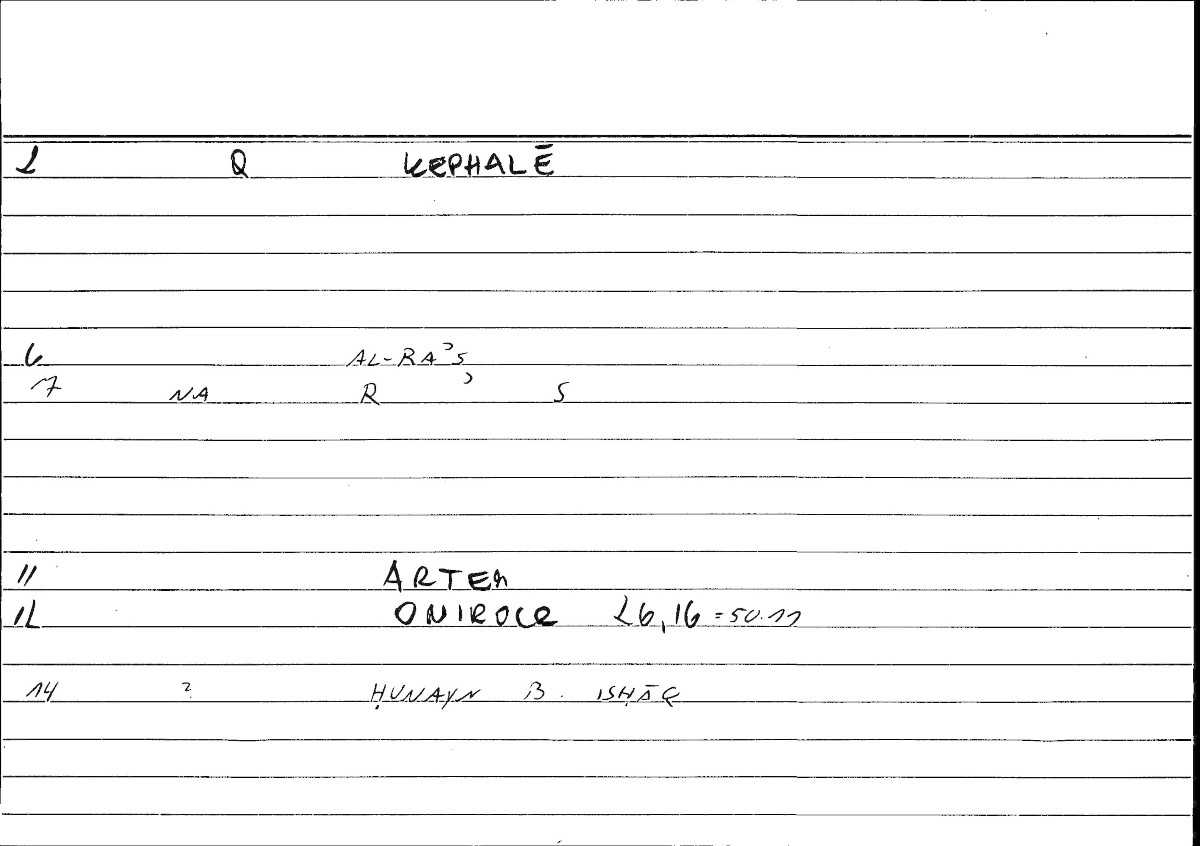 2 Q KEPHALĒ
6 AL-RAʾS
7 NA R ʾ S
11 ARTEM
12 ONIROCR 26,16 = 50.11
14 ? ḤUNAYN B. ISḤĀQ